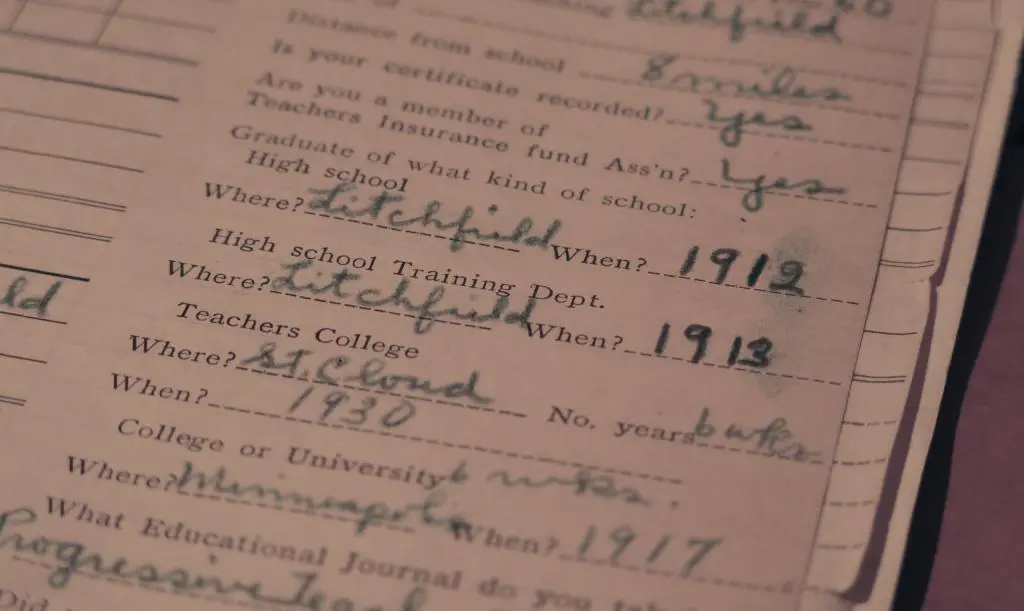 Litchfield
Distance from school 8 miles
Is your certificate recorded? Yes
Are you a member of
Teachers Insurance fund Ass'n? Yes
Graduate of what kind of school:
High school
Where? Litchfield When? 1912
High school Training Dept.
Where? Litchfield When? 1913
Teachers College
Where? St. Cloud No. years 6 wks
When? 1930
College or University 6 wks.
Where? Minneapolis When? 1917
What Educational Journal do you
Progressive
Did
ld